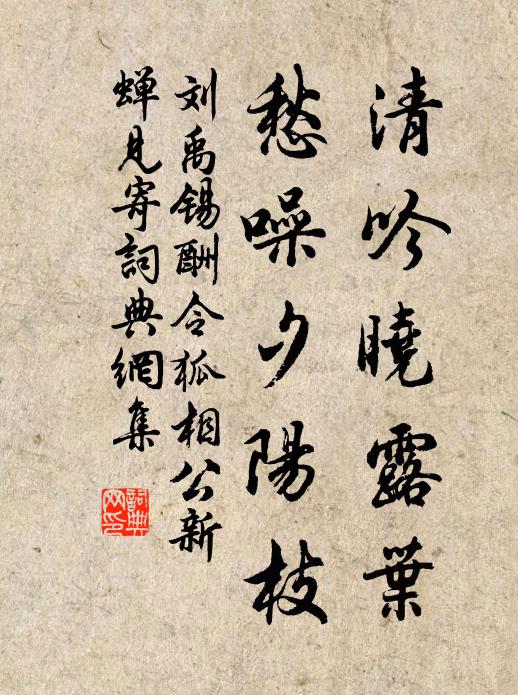 清吟曉露葉
愁噪夕陽枝
刘禹锡酬令狐相公新
蝉見寄詞典網集
詞典网印